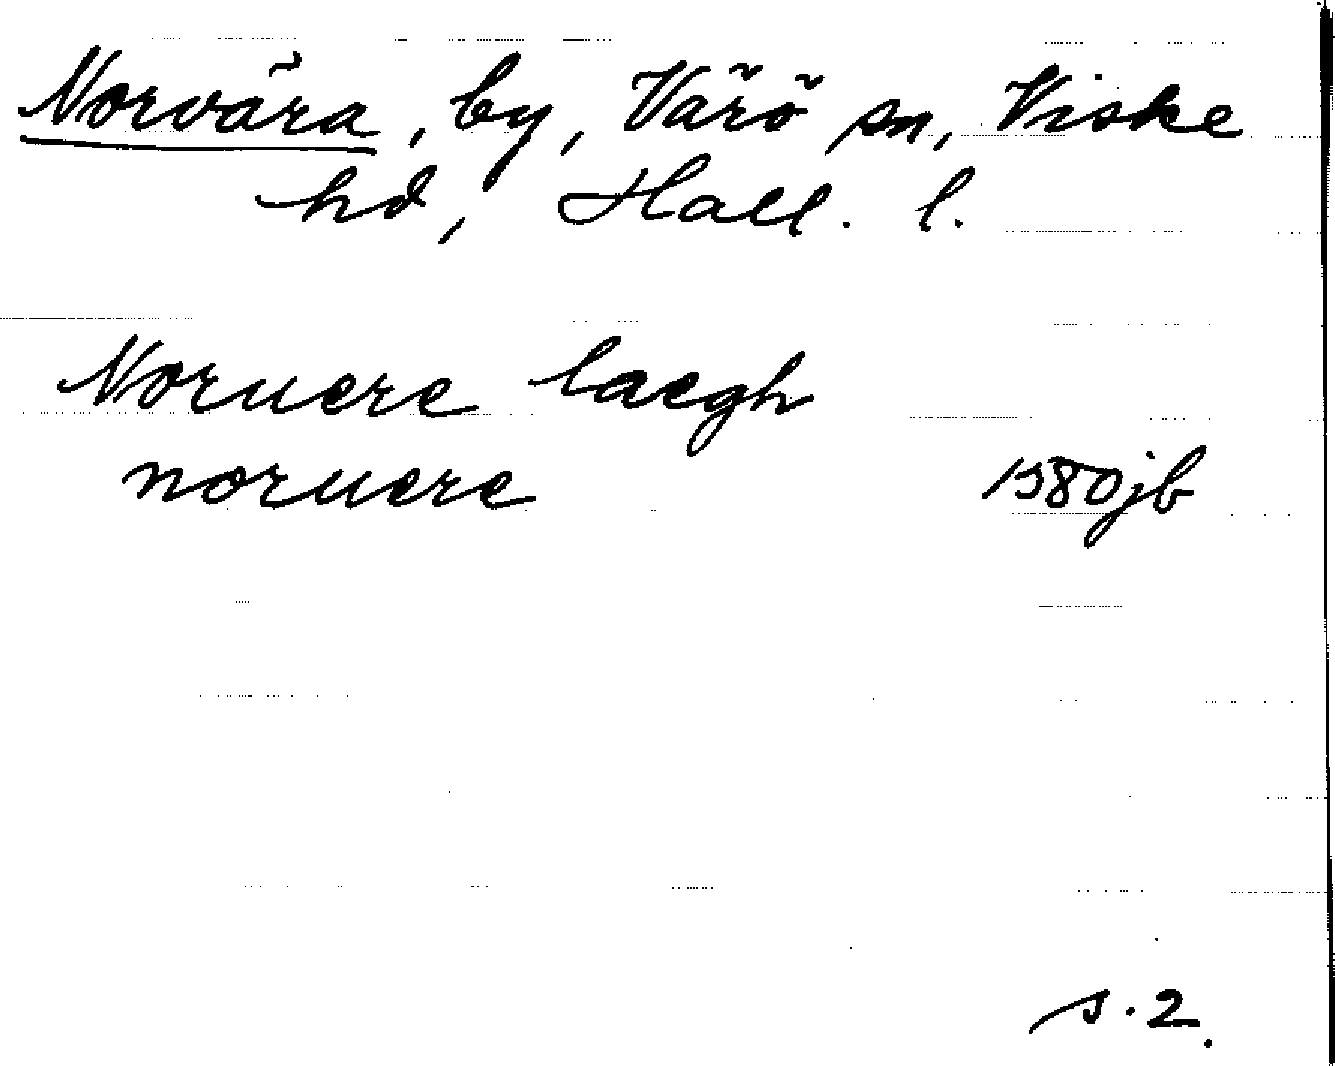 Norvära, by, Värö sn, Viske
hd, Hall. l.
Noruere laegh
noruere 1580jb
s. 2.